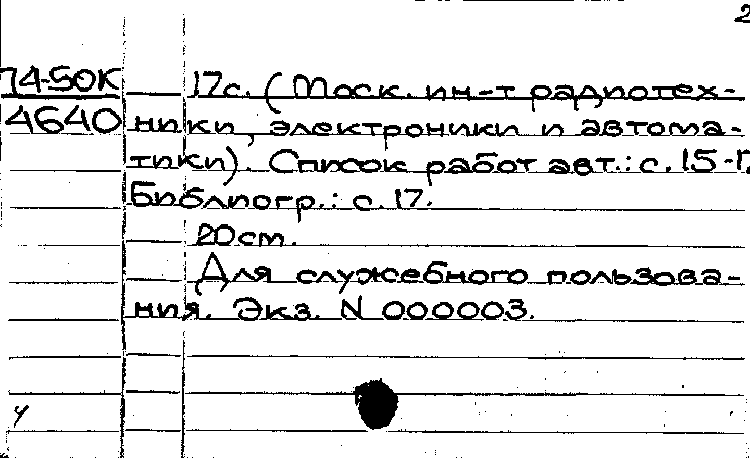 2
74-50К 17с. (Моск. ин-т радиотех-
4640 ники, электроники и автома-
тики). Список работ авт.: с. 15-17.
Библиогр.: с. 17.
20см.
Для служебного пользова-
ния. Экз. N 000003.